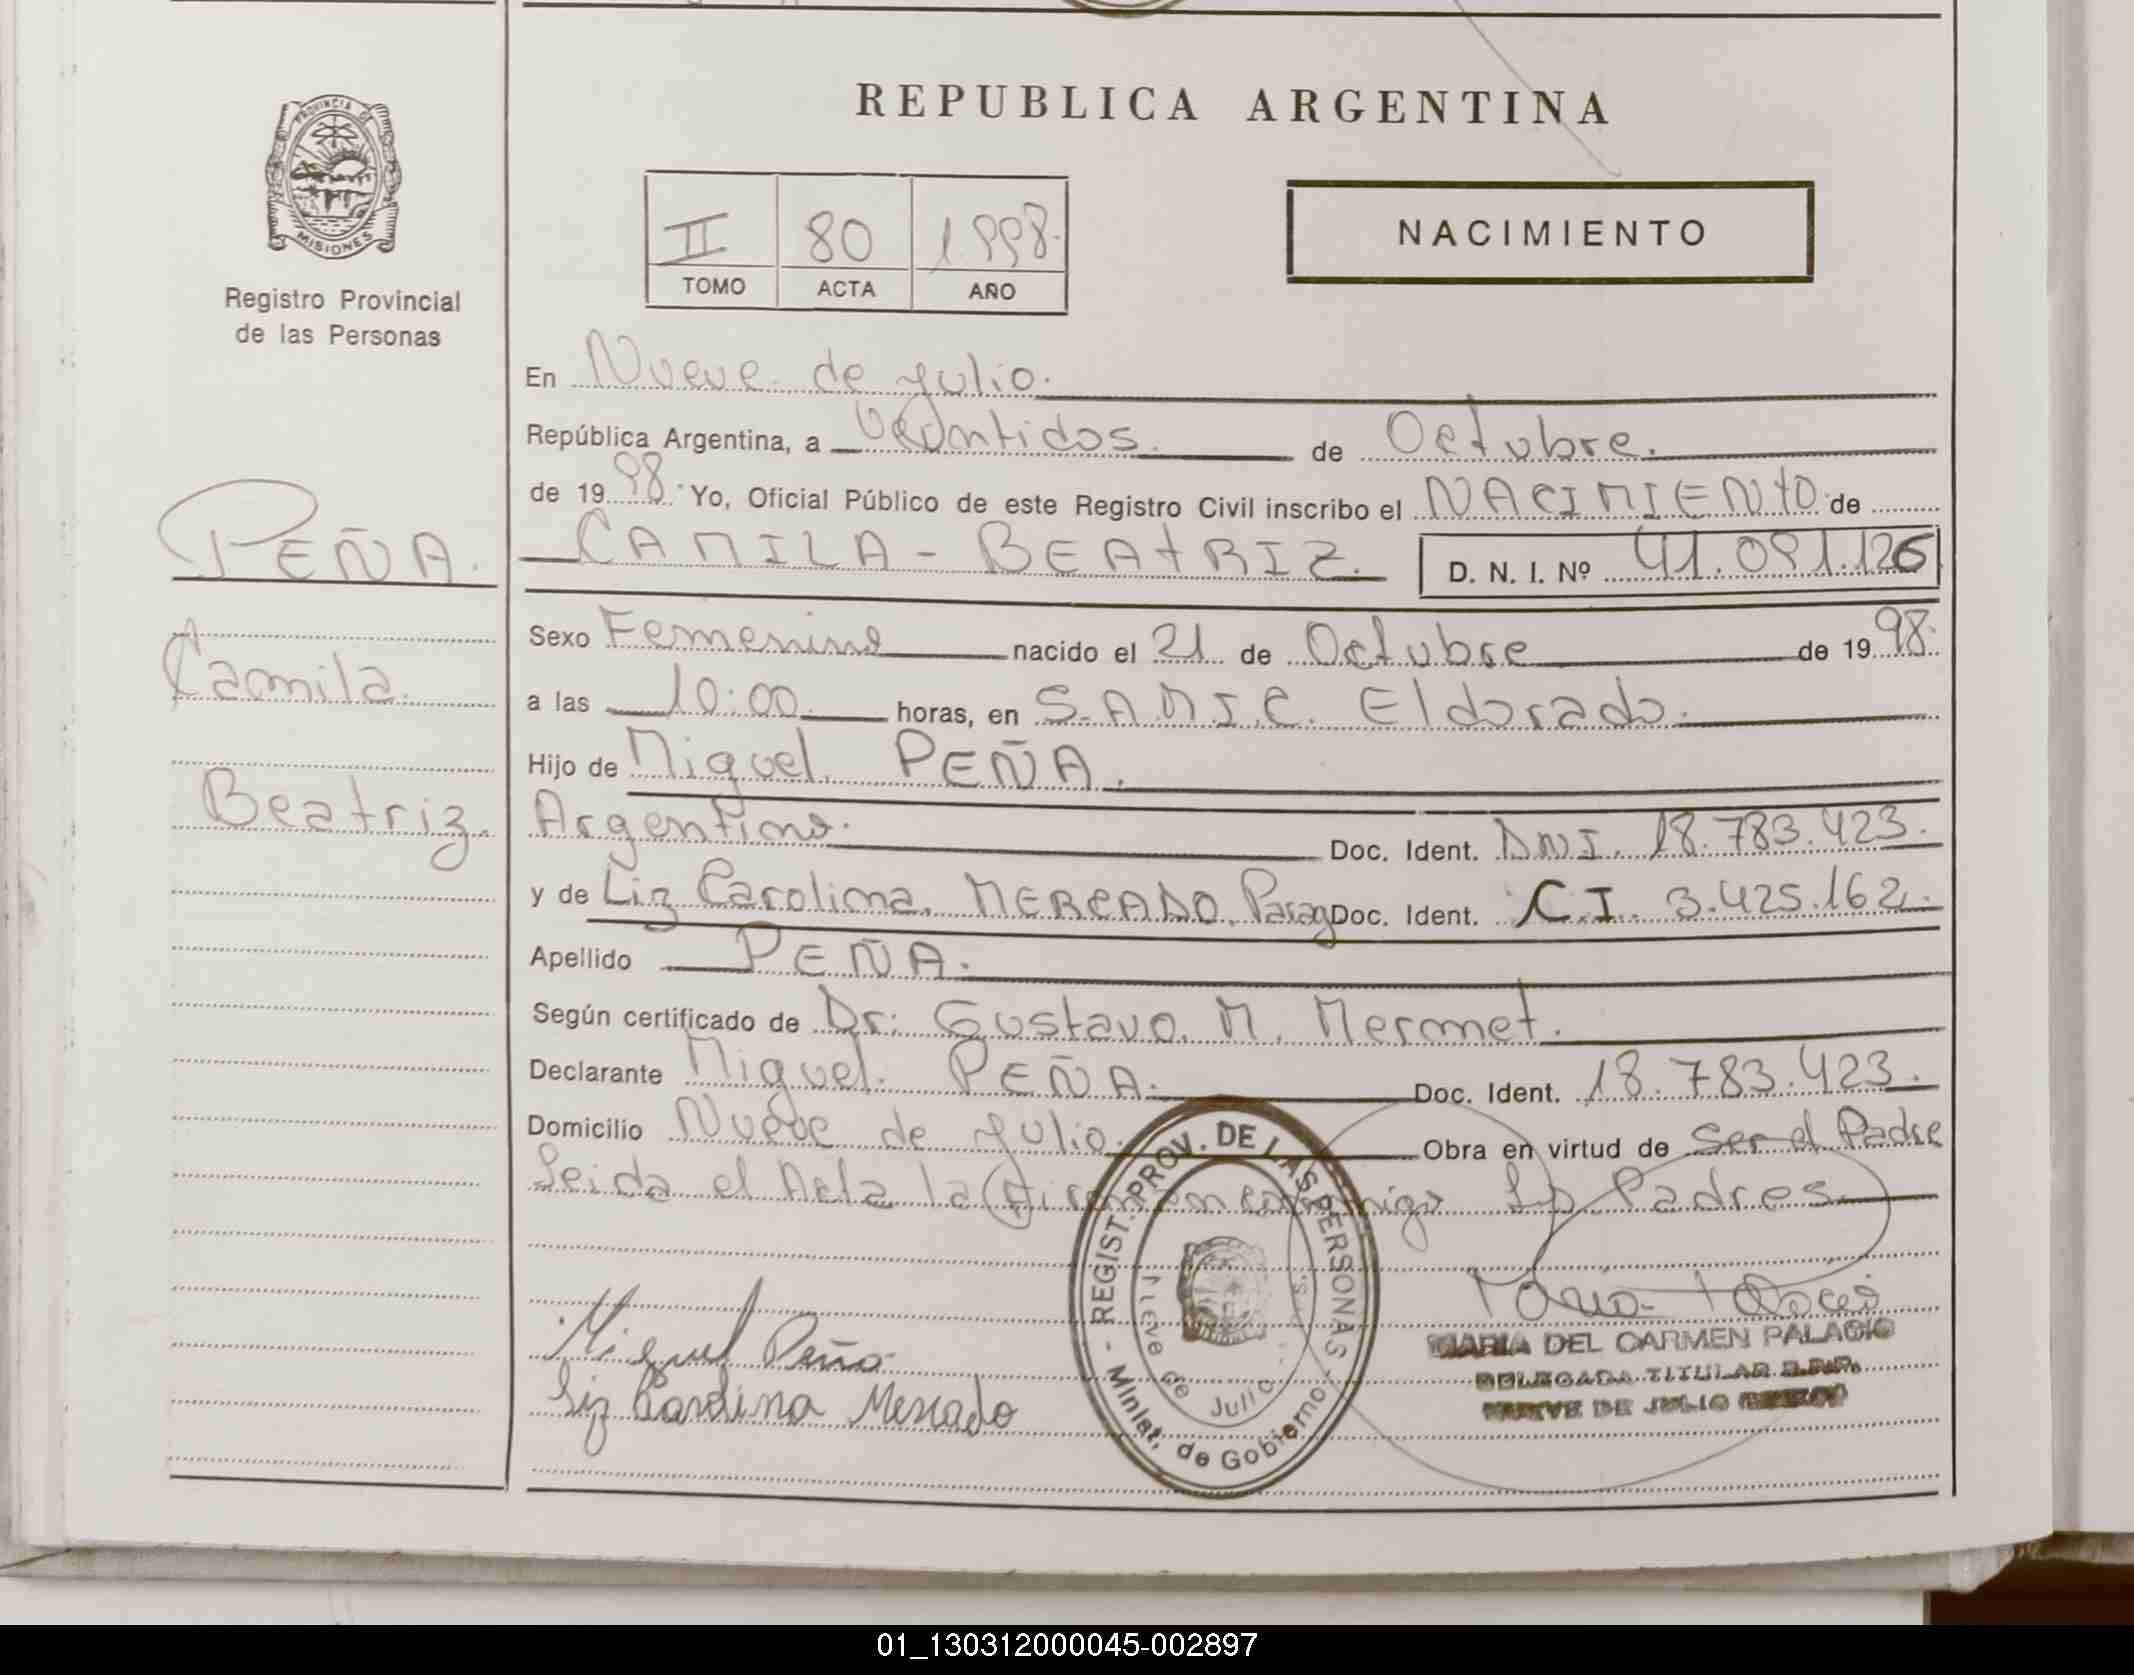 REPUBLICA ARGENTINA
PROVINCIA DE
MISIONES
Registro Provincial
de las Personas
II 80 1998.
TOMO ACTA AÑO
NACIMIENTO
PEÑA.
Camila
Beatriz.
En Nueve de Julio.
República Argentina, a Veintidos. de Octubre.
de 1998. Yo, Oficial Público de este Registro Civil inscribo el NACIMIENTO de
CAMILA - BEATRIZ. D. N. I. Nº 41.091.126
Sexo Femenino nacido el 21 de Octubre de 1998.
a las 10:00 horas, en S.A.M.I.C. Eldorado.
Hijo de Miguel PEÑA.
Argentino. Doc. Ident. DNI. 18.783.423.
y de Liz Carolina. MERCADO. Parag Doc. Ident. C.I. 3.425.162.
Apellido PEÑA.
Según certificado de Dr. Gustavo. M. Mermet.
Declarante Miguel. PEÑA. Doc. Ident. 18.783.423.
Domicilio Nueve de Julio. Obra en virtud de Ser el Padre
Leida el Acta la firman conmigo Padres
Miguel Peña
Liz Carolina Mercado
REGIST. PROV. DE LAS PERSONAS - Minist. de Gobierno -
Nueve de Julio
MARIA DEL CARMEN PALACIO
DELEGADA TITULAR R.P.P.
NUEVE DE JULIO
01_130312000045-002897